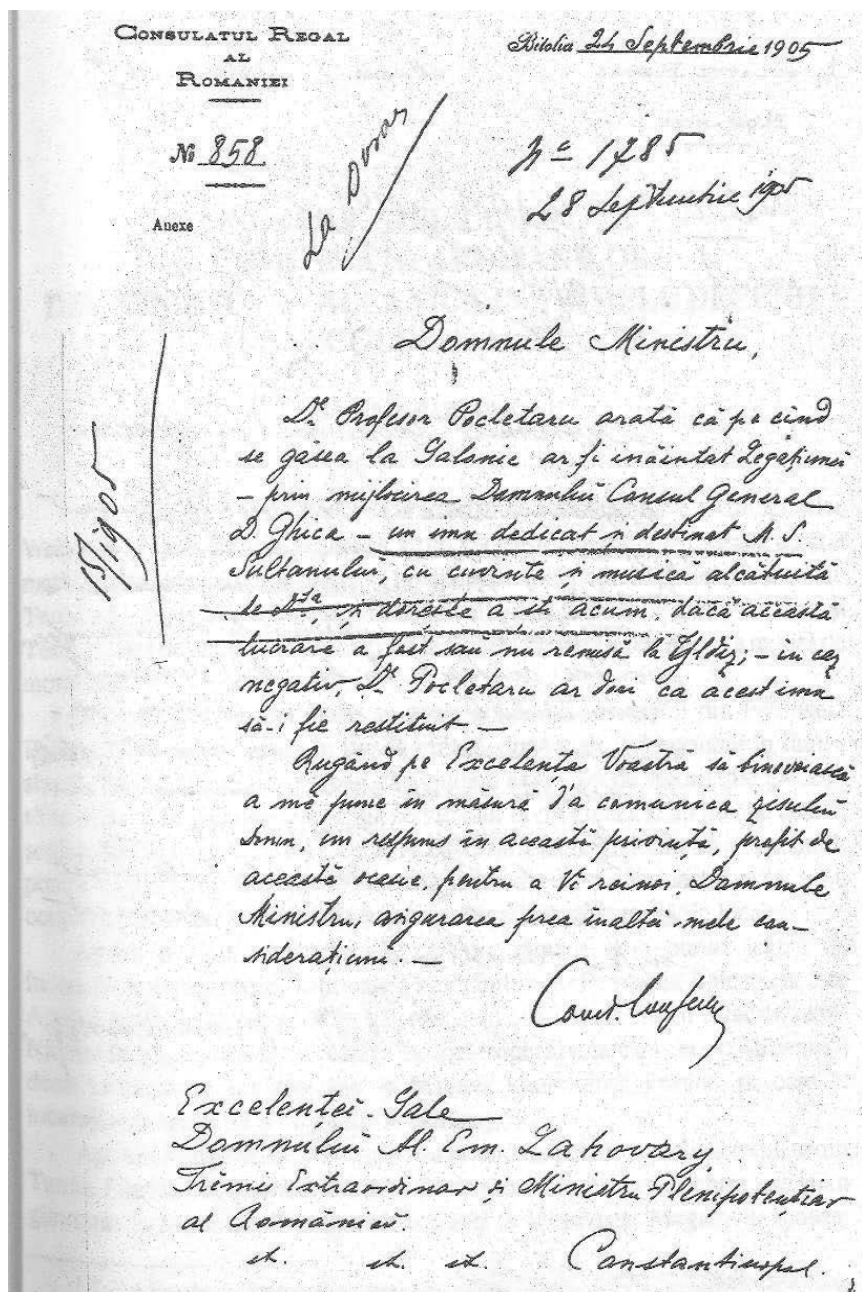 CONSULATUL REGAL
AL
ROMANIEI
Bitolia 24 Septembrie 1905
№ 858
La Dosar
№ 1785
28 Septembrie 1905
Anexe
Domnule Ministru,
15/1905
Dl. Profesor Pocletaru arată că pe cînd
se găsea la Salonic ar fi înăintat Legațiunei
– prin mijlocirea Domnului Consul General
D. Ghica – un imn dedicat și destinat M. S.
Sultanului, cu cuvinte și musică alcătuită
de D-sa, și dorește a sti acum, dacă această
lucrare a fost sau nu remisă la Yldiz; – in caz
negativ, Dl. Pocletaru ar dori ca acest imn
să-i fie restituit. –
Rugând pe Excelența Voastră sa binevoiască
a mĕ pune in măsură d'a comunica zisului
Domn, un respuns in această privință, profit de
această ocasie, pentru a Vĕ reinoi, Domnule
Ministru, asigurarea prea înaltei mele con-
siderațiuni. –
Excelenței Sale
Domnului Al. Em. Lahovary
Trimis Extraordinar și Ministru Plenipotențiar
al României.
et. et. et. Constantinopol.